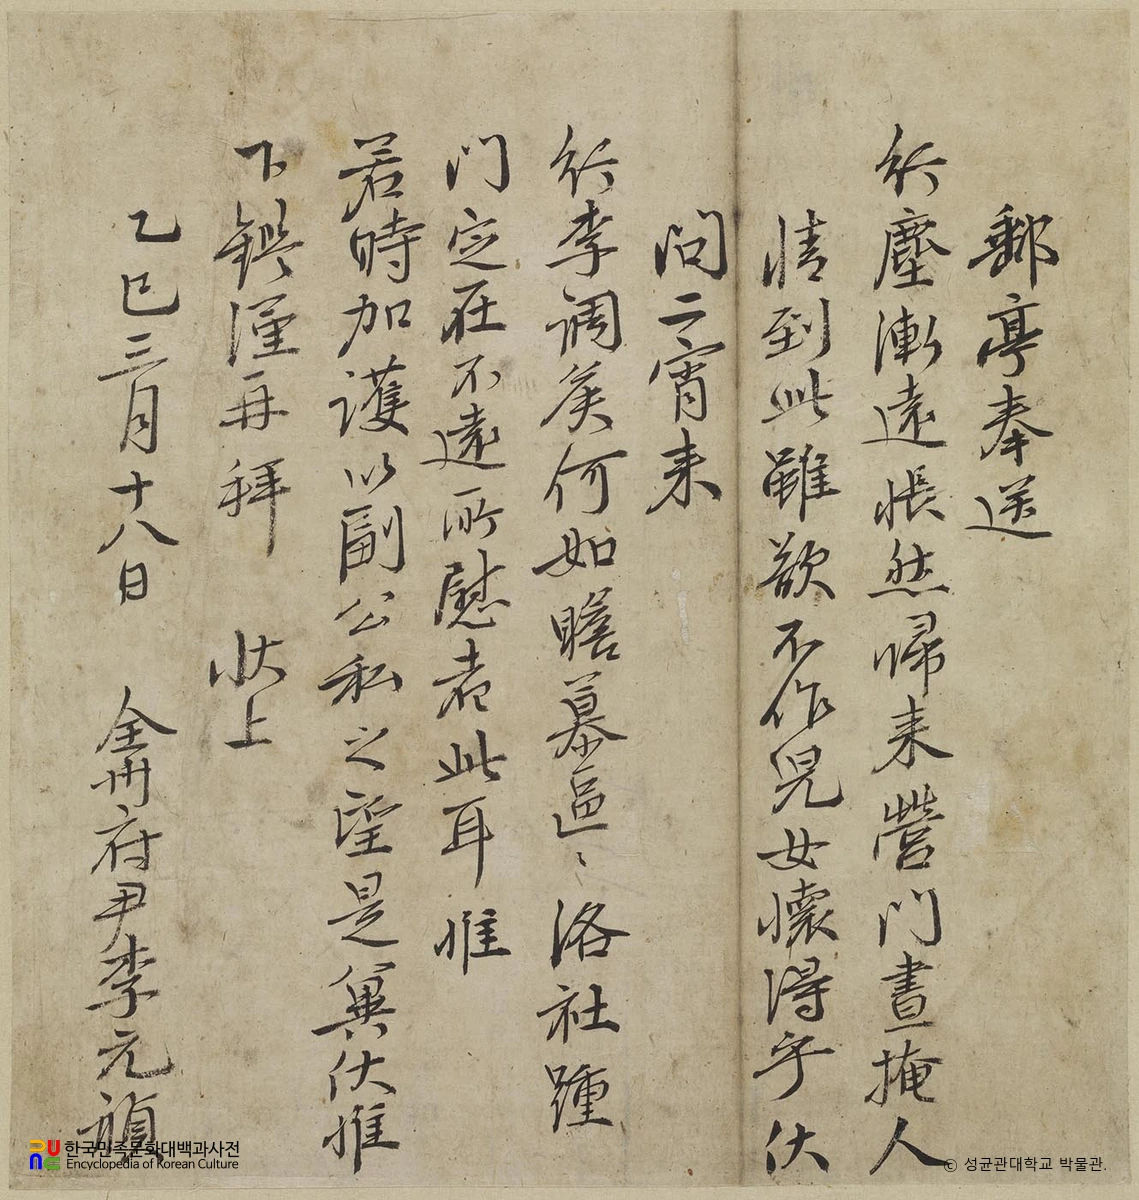 郵亭奉送
行塵漸遠悵然歸來營門晝掩人
情到此雖欲不作兒女懷得乎伏
問二宵來
行李調候何如瞻慕區〻洛社踵
門定在不遠所慰者此耳惟
若時加護以副公私之望是冀伏惟
下鑑謹再拜 狀上
乙巳三月十八日 全州府尹李元禎
한국민족문화대백과사전
Encyclopedia of Korean Culture
© 성균관대학교 박물관.